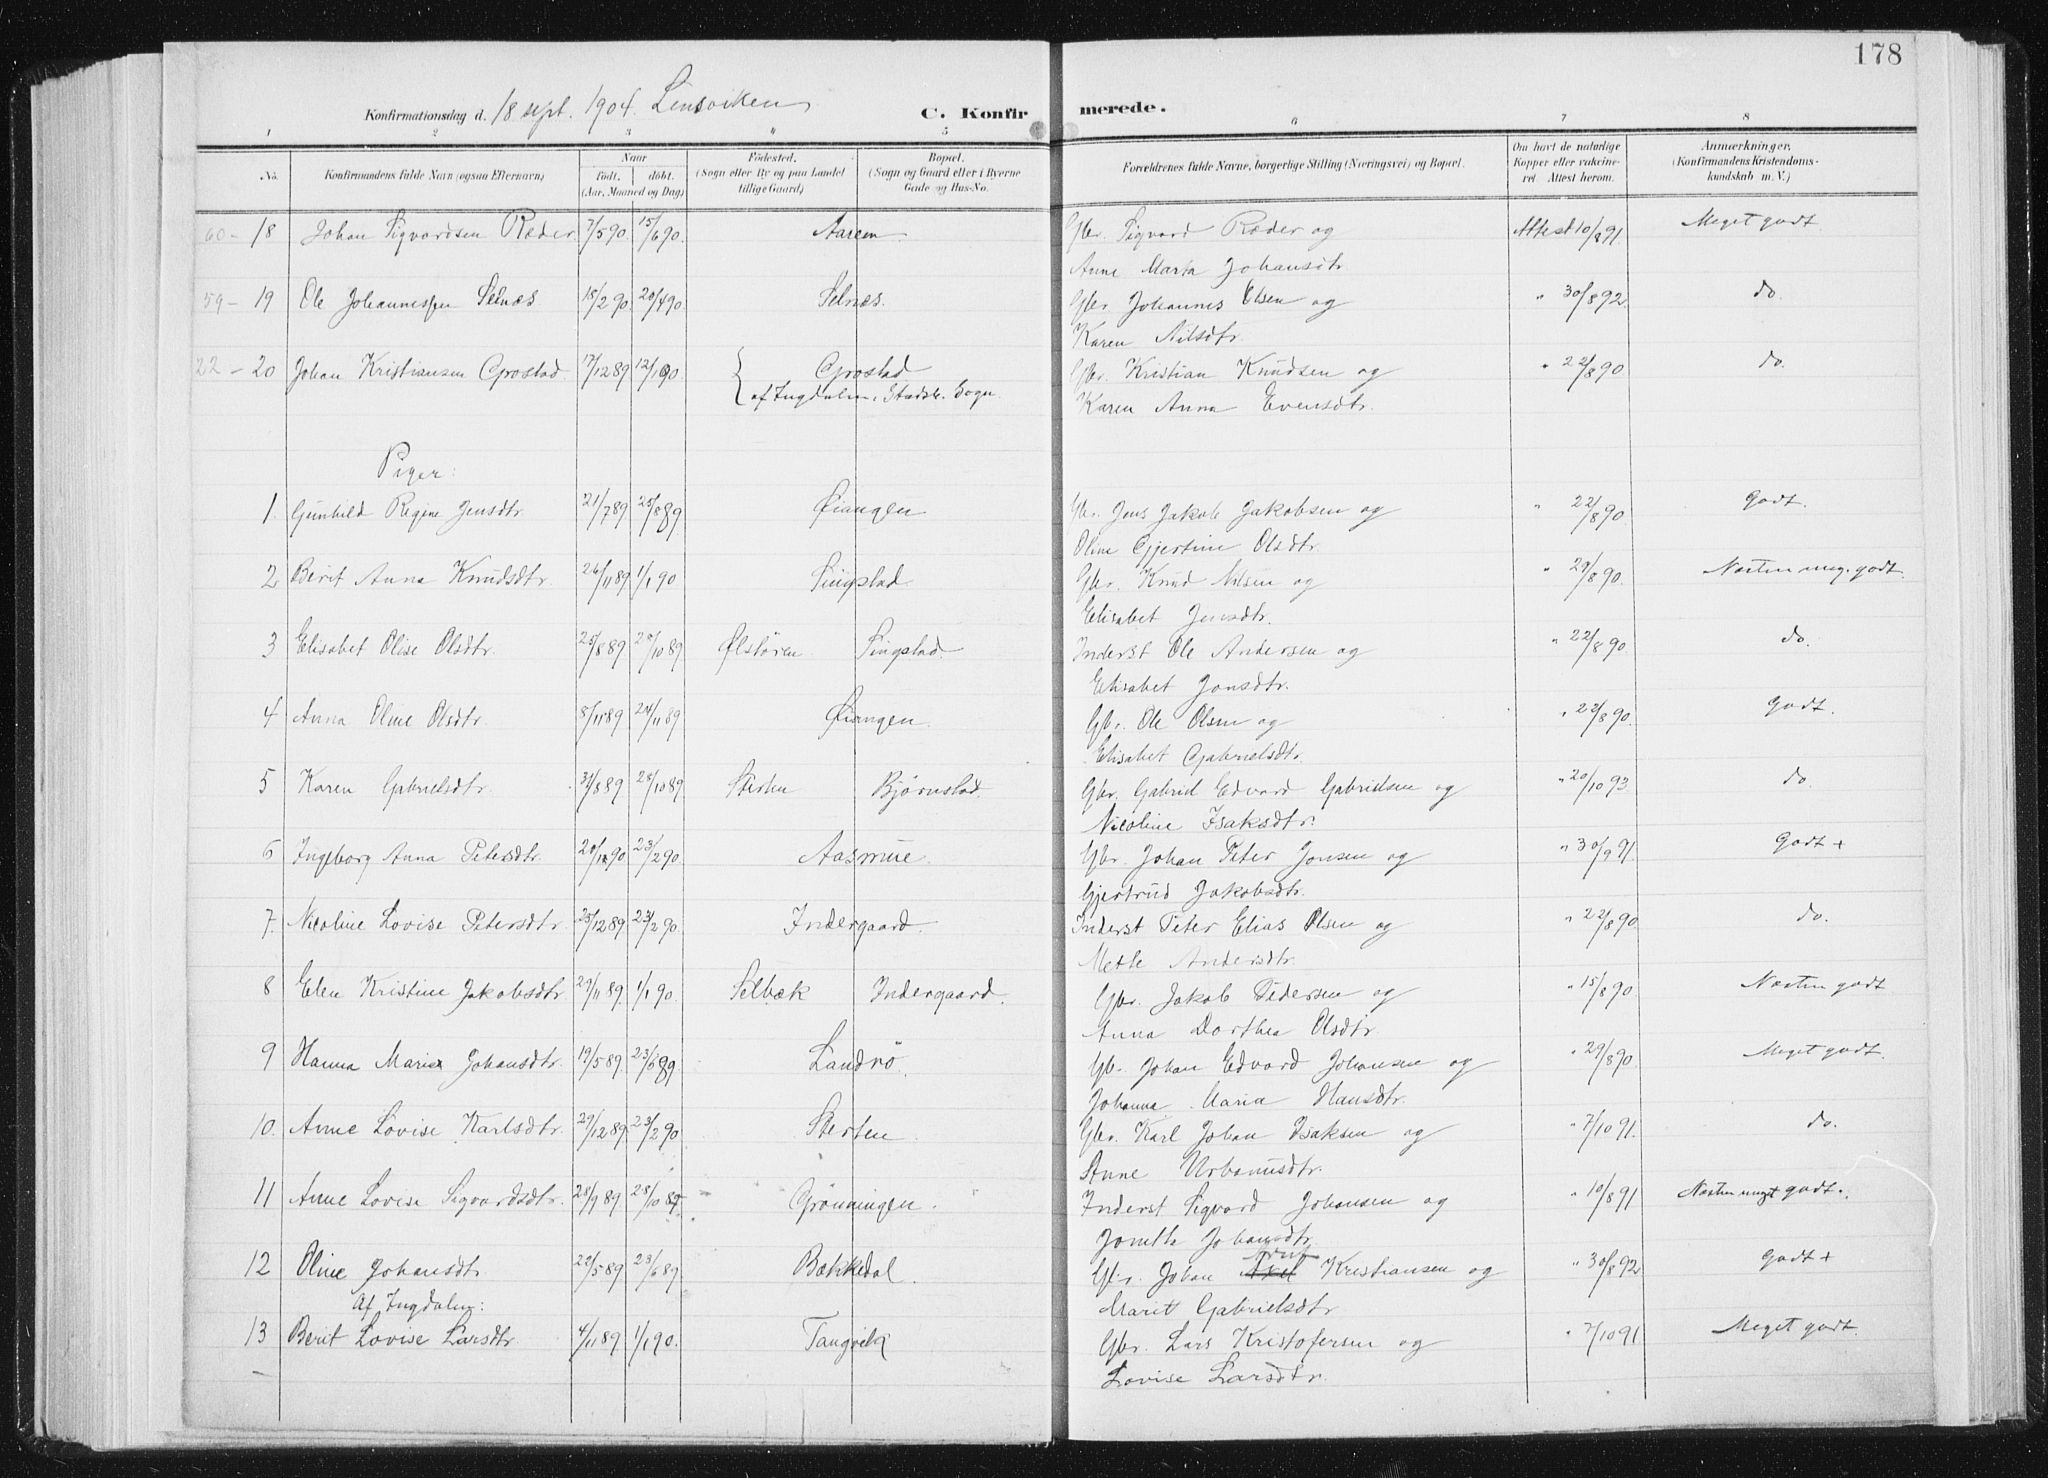 178
Konfirmationsdag d. 18 sept. 1904. Lensviken
C. Konfirmerede.
1 2 3 4 5 6 7 8
No. Konfirmandens fulde Navn (ogsaa Efternavn) Naar födt. döbt. (Aar, Maaned og Dag) Födested. (Sogn eller By og paa Landet tillige Gaard) Bopæl. (Sogn og Gaard eller i Byerne Gade og Hus-No. Forældrenes fulde Navne, borgerlige Stilling (Næringsvei) og Bopæl. Om havt de naturlige Kopper eller vaksineret. Attest herom. Anmærkninger. (Konfirmandens Kristendomskundskab m. V.)
60 - 18 Johan Sigvardsen Ræder 7/5 90 15/6 90. Aarem Gbr. Sigvard Ræder og Attest 10/8 91. Meget godt
Anne Marta Johansdtr.
59 - 19 Ole Johannessen Selnæs 15/2 90 20/4 90 Selnæs. Gbr. Johannes Olsen og " 30/8 92. do.
Karen Nilsdtr.
22 - 20 Johan Kristiansen Grostad 17/12 89 12/1 90 Grostad Gbr. Kristian Knudsen og " 22/8 90 do.
af Ingdalen, Stadsb. Sogn. Karen Anna Evensdtr.
Piger:
1. Gunhild Regine Jensdtr. 21/7 89 25/8 89 Øiangen Gbr. Jens Jakob Jakobsen og " 22/8 90. Godt.
Oline Gjertine Olsdtr.
2 Berit Anna Knudsdtr. 26/11 89 1/1 90 Singstad Gbr. Knud Nilsen og " 29/8 90. Næsten meg. godt.
Elisabet Jensdtr.
3 Elisabet Olise Olsdtr. 25/8 89 20/10 89 Ølstøren Singstad. Inderst Ole Andersen og " 22/8 90 do.
Elisabet Jonsdtr.
4 Anna Oline Olsdtr. 8/11 89 24/11 89 Øiangen. Gbr. Ole Olsen og " 22/8 90. Godt.
Elisabet Gabrielsdtr.
5 Karen Gabrielsdtr. 31/8 89 28/10 89 Sterten Bjørnstad. Gbr. Gabriel Edvard Gabrielsen og " 20/10 93. do.
Nicoline Isaksdtr.
6 Ingeborg Anna Petersdtr. 20/1 90 23/2 90. Aasmue. Gbr. Johan Peter Jonsen og " 30/9 91. Godt +
Gjertrud Jakobsdtr.
7. Nicoline Lovise Petersdtr. 25/12 89 23/2 90. Indergaard. Inderst Peter Elias Olsen og " 22/8 90. do.
Mette Andersdtr.
8 Elen Kristine Jakobsdtr. 29/11 89. 1/1 90. Selbæk Indergaard. Gbr. Jakob Pedersen og " 15/8 90 Næsten godt
Anna Dorthea Olsdtr.
9 Hanna Maria Johansdtr. 19/5 89. 23/6 89. Landrö. Gb. Johan Edvard Johansen og " 29/8 90. Meget godt.
Johanna Maria Hansdtr.
10. Anne Lovise Karlsdtr. 29/12 89. 23/2 90. Sterten Gbr. Karl Johan Isaksen og " 7/10 91. do.
Anne Urbanusdtr.
11 Anne Lovise Sigvardsdtr. 28/9 89. 28/10 89. Grönningen. Inderst Sigvard Johansen og " 10/8 91 Næsten meget godt.
Jonetta Johansdtr.
12 Oline Johansdtr. 22/5 89 23/6 89. Bækkedal. Gbr. Johan Axel Kristiansen og " 30/8 92 Godt +
Af Ingdalen: Marit Gabrielsdtr.
13 Berit Lovise Larsdtr. 4/11 89 1/1 90. Tangvik Gbr. Lars Kristofersen og " 7/10 91 Meget godt.
Lovise Larsdtr.